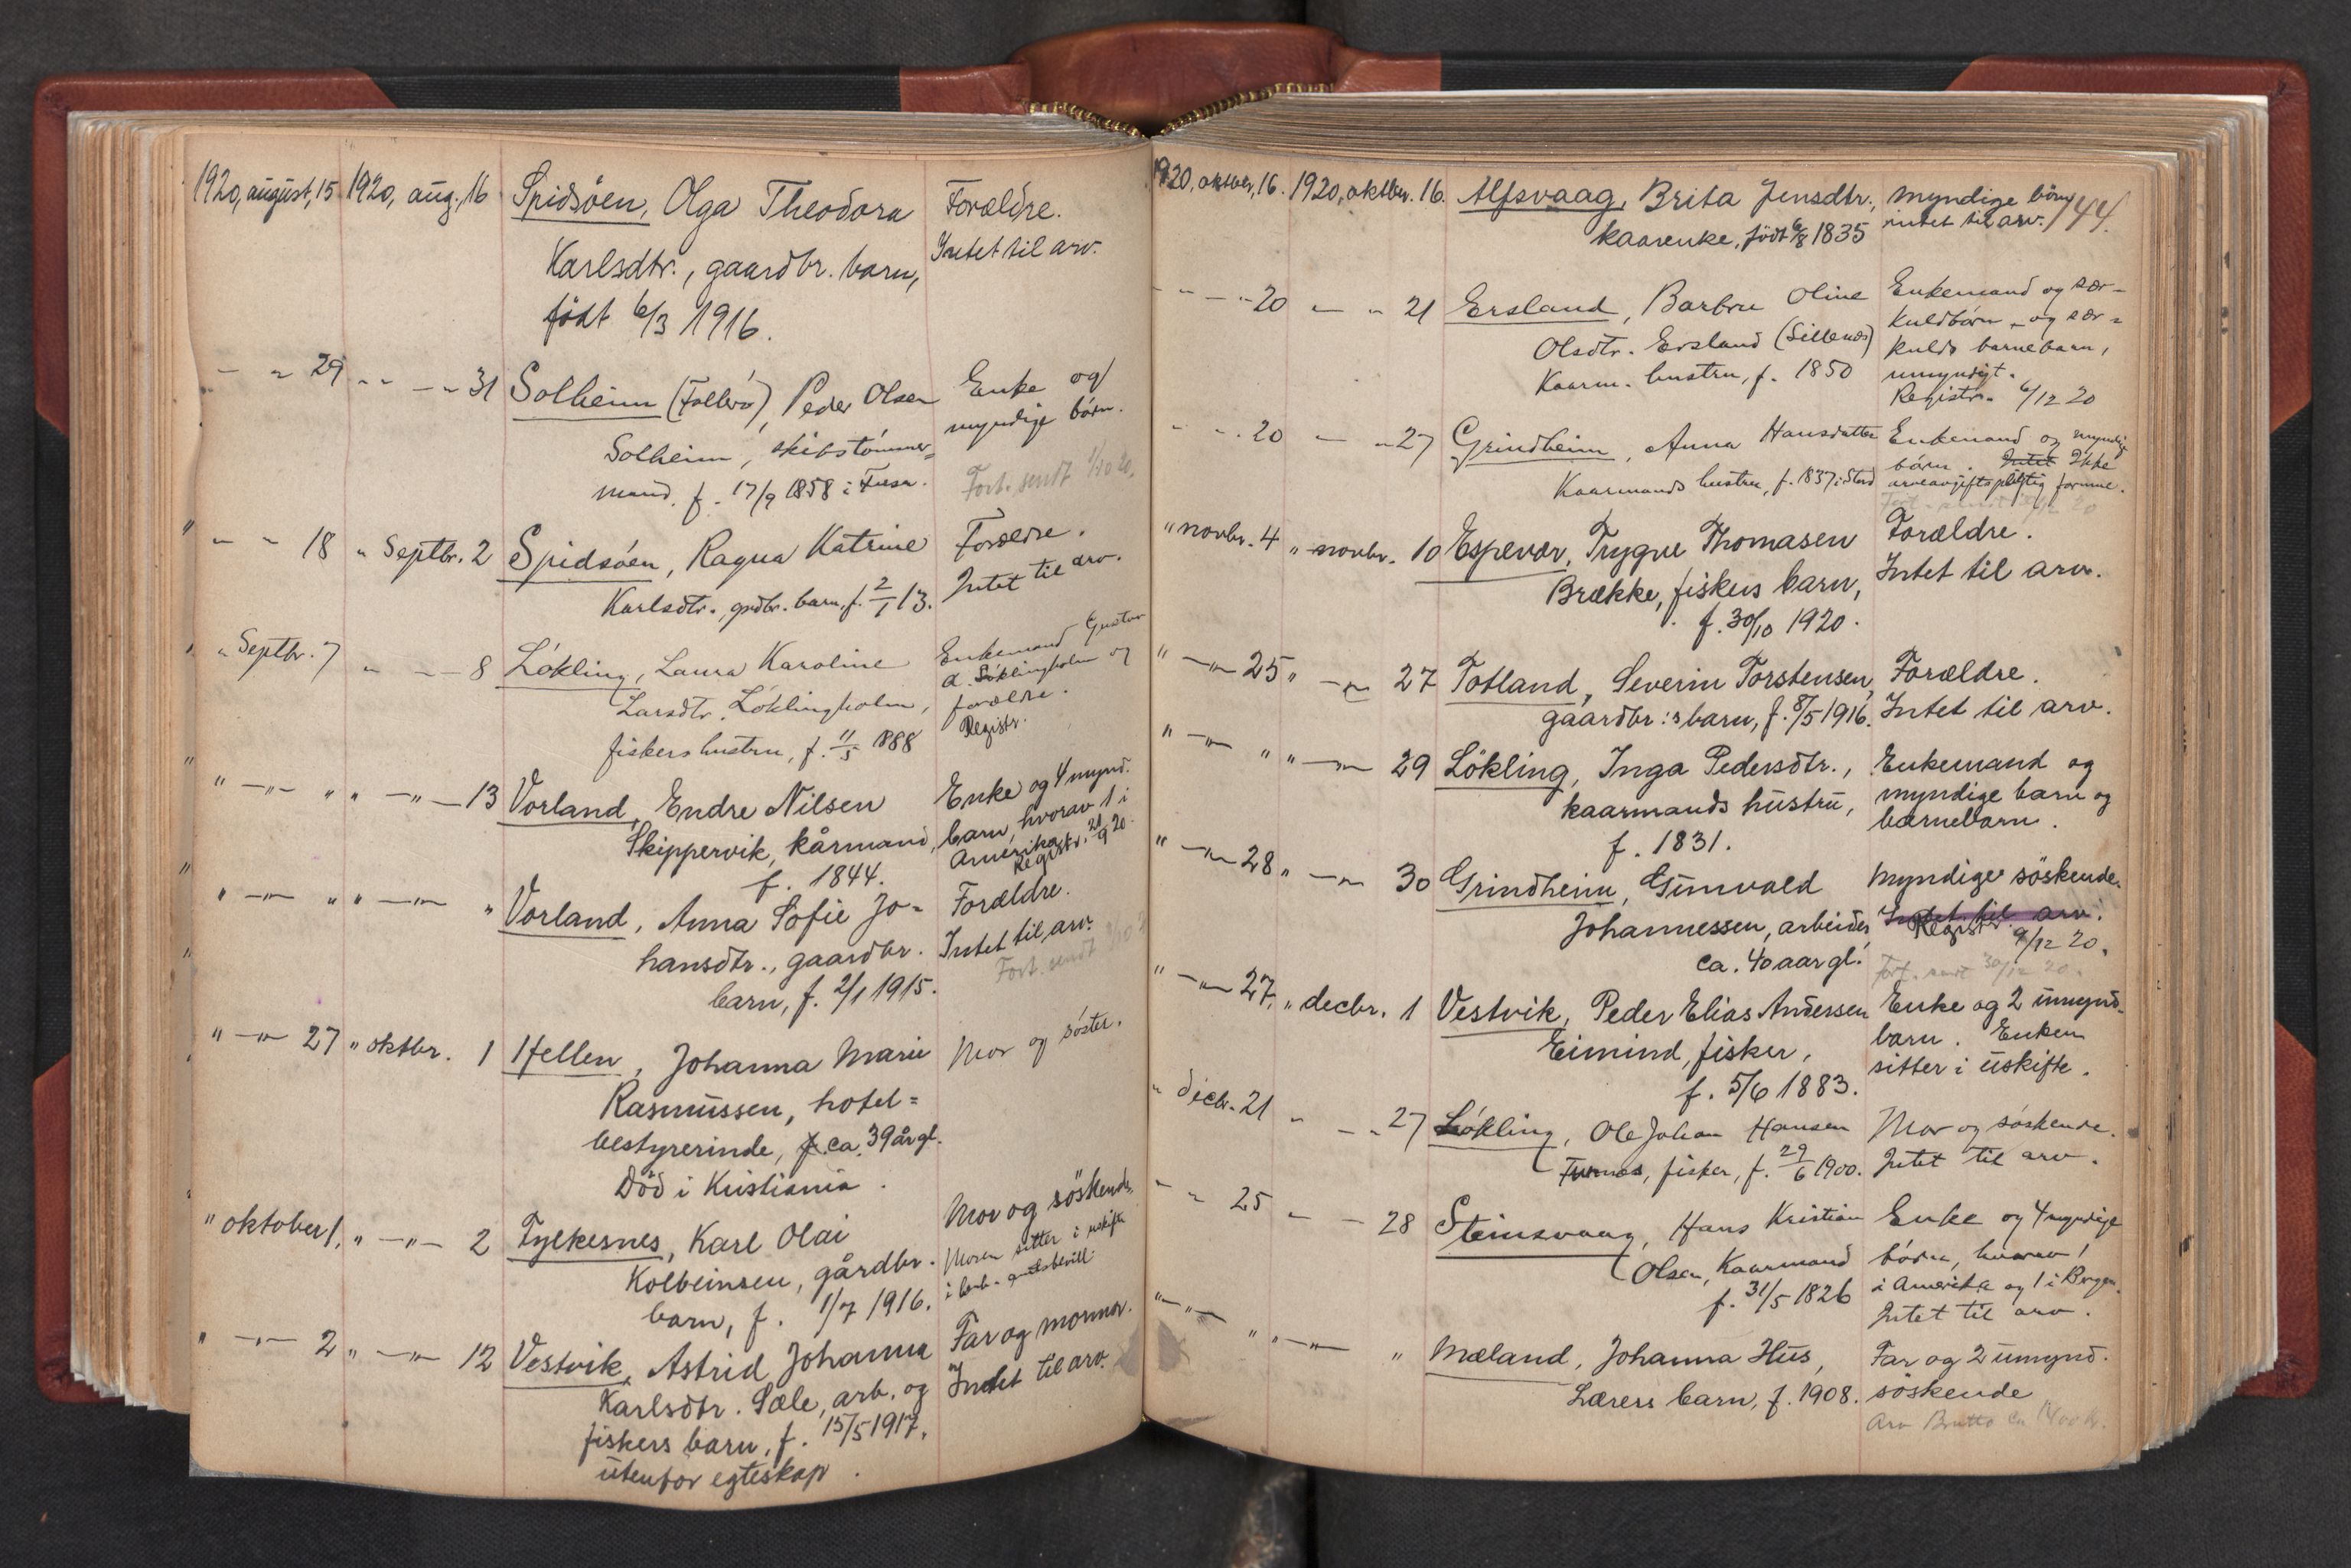 1920, august, 15 1920, aug. 16 Spidsöen, Olga Theodora Forældre.
Karlsdtr., gaardbr. barn, Intet til arv.
født 6/3 1916.
" " 29 " " 31 Solheim (Follerö), Peder Olsen Enke og
Solheim, skibstömmer= myndige börn.
mand. f. 17/9 1858 i Fusa. Fort. sendt 1/10 20.
" " 18 " Septbr. 2 Spidsöen, Ragna Katrine Forældre.
Karlsdtr., grdbr. barn, f. 2/1 13. Intet til arv.
" Septbr. 7 " " 8 Lökling, Laura Karoline Enkemand Gustav
Larsdtr. Löklingholm, A. Löklingholm og
fiskers hustru, f. 11/5 1888 forældre.
Registr.
" " " " " 13 Vorland, Endre Nilsen Enke og 4 mynd.
Skippervik, kårmand, barn, hvorav 1 i
f. 1844. Amerika
Registr. 21/9 20.
" " " " " " Vorland, Anna Sofie Jo= Forældre.
hansdtr., gaardbr. Intet til arv.
barn, f. 2/1 1915. Fort. sendt
" " 27 " oktbr. 1 Hellen, Johanna Marie Mor og söster.
Rasmussen, hotel=
bestyrerinde, f. ca. 39 år gl.
Död i Kristiania.
" oktober 1. " " 2 Fylkesnes, Karl Olai Mor og söskende.
Kolbeinsen, gårdbr. Moren sitter i uskifte
barn, f. 1/7 1916. i
" " 2 " " 12 Vestvik, Astrid Johanna Far og mormor.
Karlsdtr. Sæle, arb. og Intet til arv.
fiskers barn, f. 15/5 1917,
utenfor egteskap.
1920, oktober, 16. 1920, oktbr. 16. Alfsvaag, Brita Jensdtr., myndige börn 144.
kaarenke, født 6/8 1835 intet til arv.
" " 20 " " 21 Ersland, Barbru Oline Enkemand og sær-
Olsdtr. Ersland (Sillenæs) kuldbörn og sær=
Kaarm. hustru, f. 1850 kulds barnebarn,
umyndigt.
Registr. 6/12 20
" " 20 " " 27 Grindheim, Anna Hansdatter Enkemand og myndige
Kaarmands hustru, f. 1837 i Stord börn. Intet Ikke
arveavgiftspligtig formue.
" novbr. 4 " novbr. 10 Espevær, Trygve Thomasen Forældre.
Brække, fiskers barn, Intet til arv.
f. 30/10 1920.
" " 25 " " 27 Totland, Severin Torstensen, Forældre.
gaardbr:s barn, f. 8/5 1916. Intet til arv.
" " " " " 29 Lökling, Inga Pedersdtr., Enkemand og
kaarmands hustru, myndige barn og
f. 1831. barnebarn.
" " 28 " " 30 Grindheim, Gunvald Myndige söskende.
Johannessen, arbeider Intet til arv.
ca. 40 aar gl. Registr. 9/12 20.
Fort. sendt 30/12 20.
" " 27, " decbr. 1 Vestvik, Peder Elias Andersen Enke og 2 umynd.
Eimind, fisker, barn. Enken
f. 5/6 1883. sitter i uskifte.
" decbr. 21 " " 27 Lökling, Ole Johan Hansen Mor og söskende.
Turnes, fisker, f. 29/6 1900. Intet til arv.
" " 25 " " 28 Steinsvaag, Hans Kristian Enke og 4 myndige
Olsen, Kaarmand börn, hvorav 1
f. 31/5 1826 i Amerika og 1 i Bergen.
Intet til arv.
" " " " " Mæland, Johanna Hus, Far og 2 umynd.
Lærers barn, f. 1908. söskende
Arv Brutto ca.